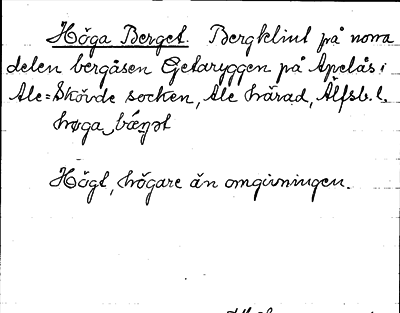 Höga Berget. Bergklint på norra
delen bergåsen Getaryggen på Apelås i
Ale=Skövde socken, Ale härad, Älfsb. l.
høga bærjət
Högt, högare än omgivningen.